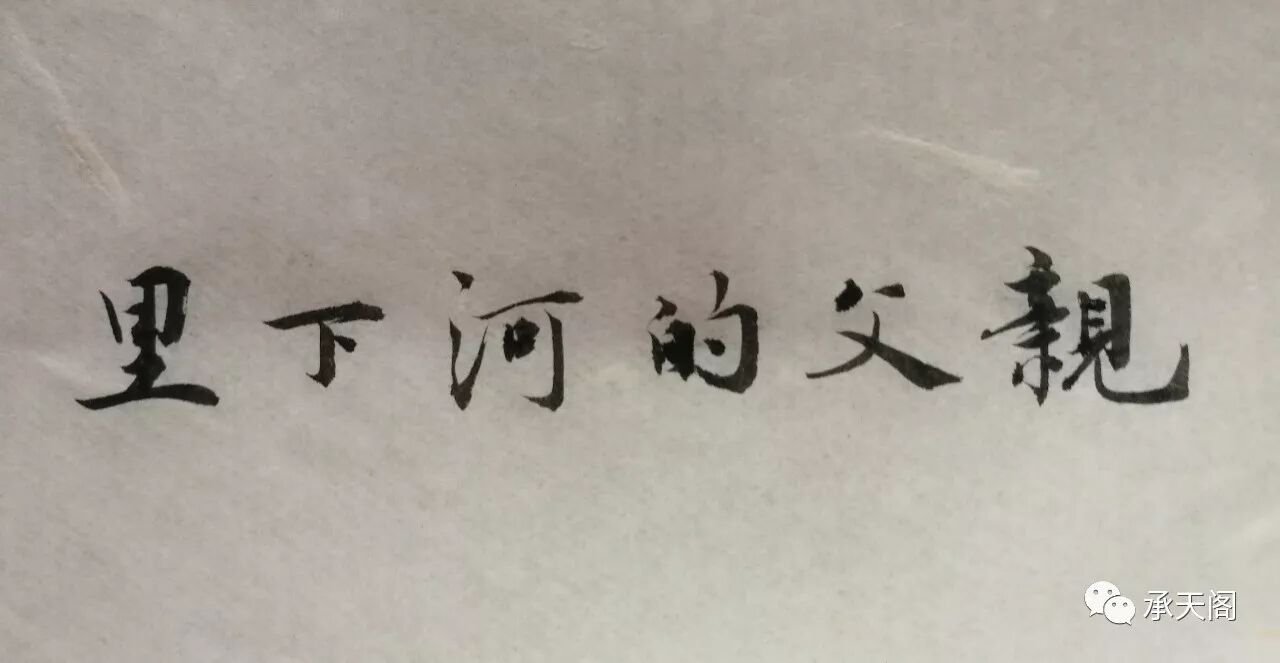 里下河的父親
承天阁